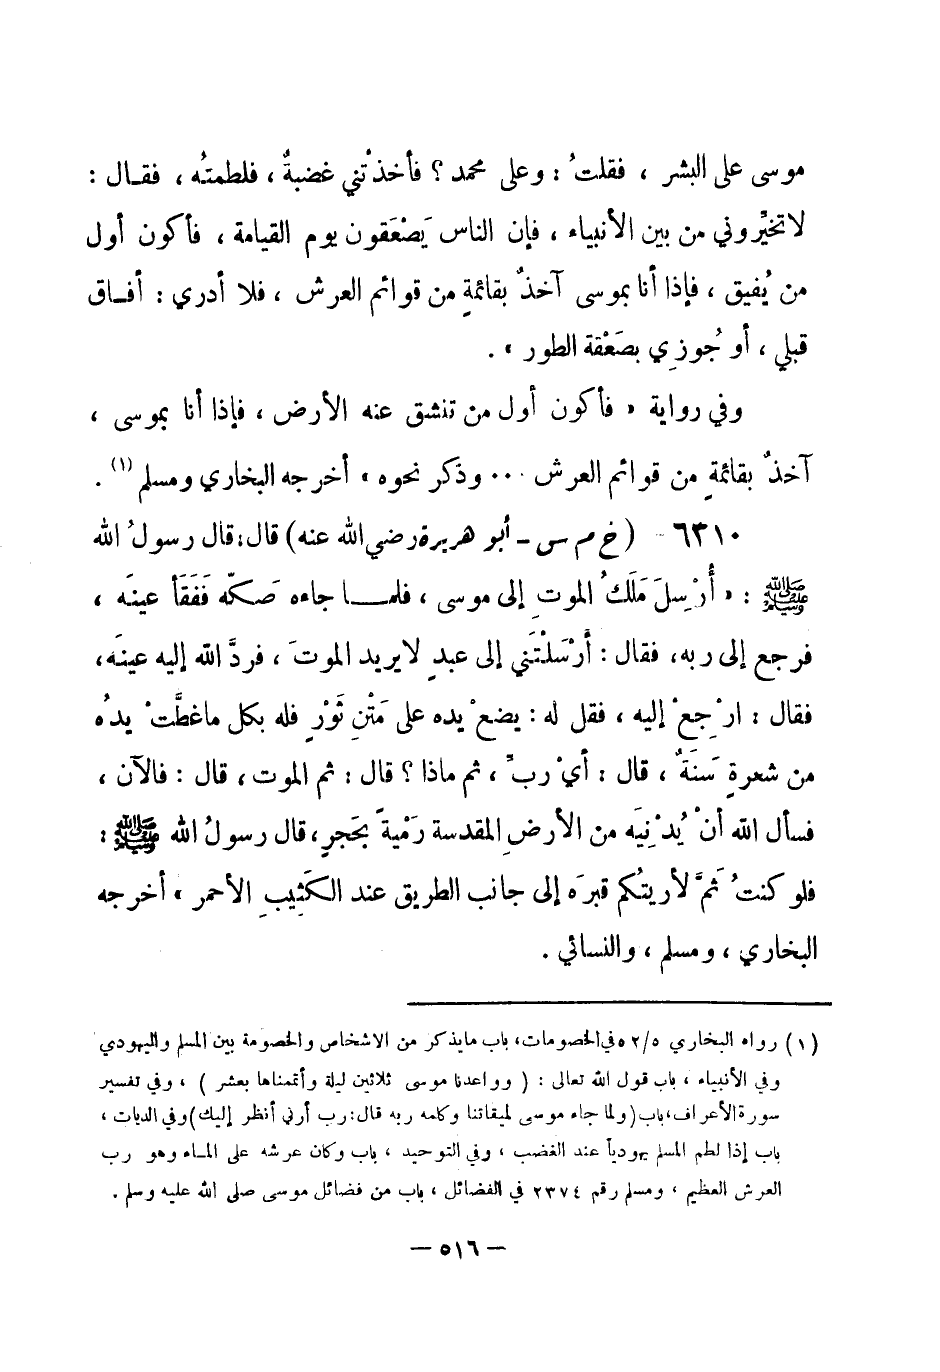 موسى على البشر ، فقلتُ : وعلى محمد ؟ فأخذتْني غضبةٌ ، فلطمتُه ، فقـال :
لا تخيِّروني من بين الأنبياء ، فإن الناس يَصْعَقون يوم القيامة ، فأكون أول
من يُفيق ، فإذا أنا بموسى آخذٌ بقائمةٍ من قوائم العرش ، فلا أدري : أفـاق
قبلي ، أو جُوزِي بصَعْقة الطور » .
وفي رواية « فأكون أول من تنشق عنه الأرض ، فإذا أنا بموسى ،
آخذٌ بقائمةٍ من قوائم العرش ... وذكر نحوه » أخرجه البخاري ومسلم (١) .
٦٣١٠ - ( خ م س - أبو هريرة رضي الله عنه ) قال : قال رسولُ الله
ﷺ : « أُرْسِلَ مَلَكُ الموتِ إلى موسى ، فلمـــا جاءه صَكّه فَفَقَأ عينَه ،
فرجع إلى ربه، فقال : أَرْسَلْتَني إلى عبدٍ لا يريد الموتَ ، فردَّ الله إليه عينَه،
فقال : ارْجِعْ إليه ، فقل له : يضعْ يده على مَتْنِ ثَوْرٍ فله بكل ما غطَّتْ يدُه
من شعرةٍ سَنَةٌ ، قال : أيْ ربِّ ، ثم ماذا ؟ قال : ثم الموت ، قال : فالآن ،
فسأل الله أنْ يُدْنِيَه من الأرضِ المقدسة رَمْيةً بحَجرٍ ، قال رسولُ الله ﷺ :
فلو كنتُ ثَمَّ لأريتُكم قبرَه إلى جانب الطريق عند الكَثِيبِ الأحمر » أخرجه
البخاري ، ومسلم ، والنسائي .
(١) رواه البخاري ٥/ ٥٢ في الخصومات، باب ما يذكر من الاشخاص والخصومة بين المسلم واليهودي
وفي الأنبياء ، باب قول الله تعالى : ( وواعدنا موسى ثلاثين ليلة وأتممناها بعشر ) ، وفي تفسير
سورة الأعراف، باب ( ولما جاء موسى لميقاتنا وكلمه ربه قال: رب أرني أنظر إليك ) وفي الديات ،
باب إذا لطم المسلم يهودياً عند الغضب ، وفي التوحيد ، باب وكان عرشه على المـاء وهو رب
العرش العظيم ، ومسلم رقم ٢٣٧٤ في الفضائل ، باب من فضائل موسى صلى الله عليه وسلم .
— ٥١٦ —